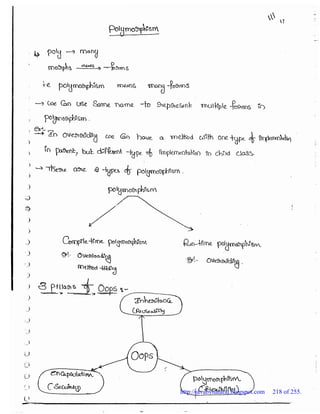 Polymorphism
↳ poly → many
morphs means→ forms
i.e polymorphism means many forms
→ we can use same name to represent multiple forms in
polymorphism.
Ex:-
→ In overriding we can have a method with one type of Implementation
in parent, but different type of implementation in child class.
→ There are 2 types of polymorphism.
polymorphism
Compile-time polymorphism
Run-time polymorphism
Ex:- overloading
method hiding
Ex:- overriding.
3 Pillars of OOPs :-
Inheritance
(Reusability)
OOPs
Encapsulation
(Security)
polymorphism
http://
.blogspot.com
218 of 255.